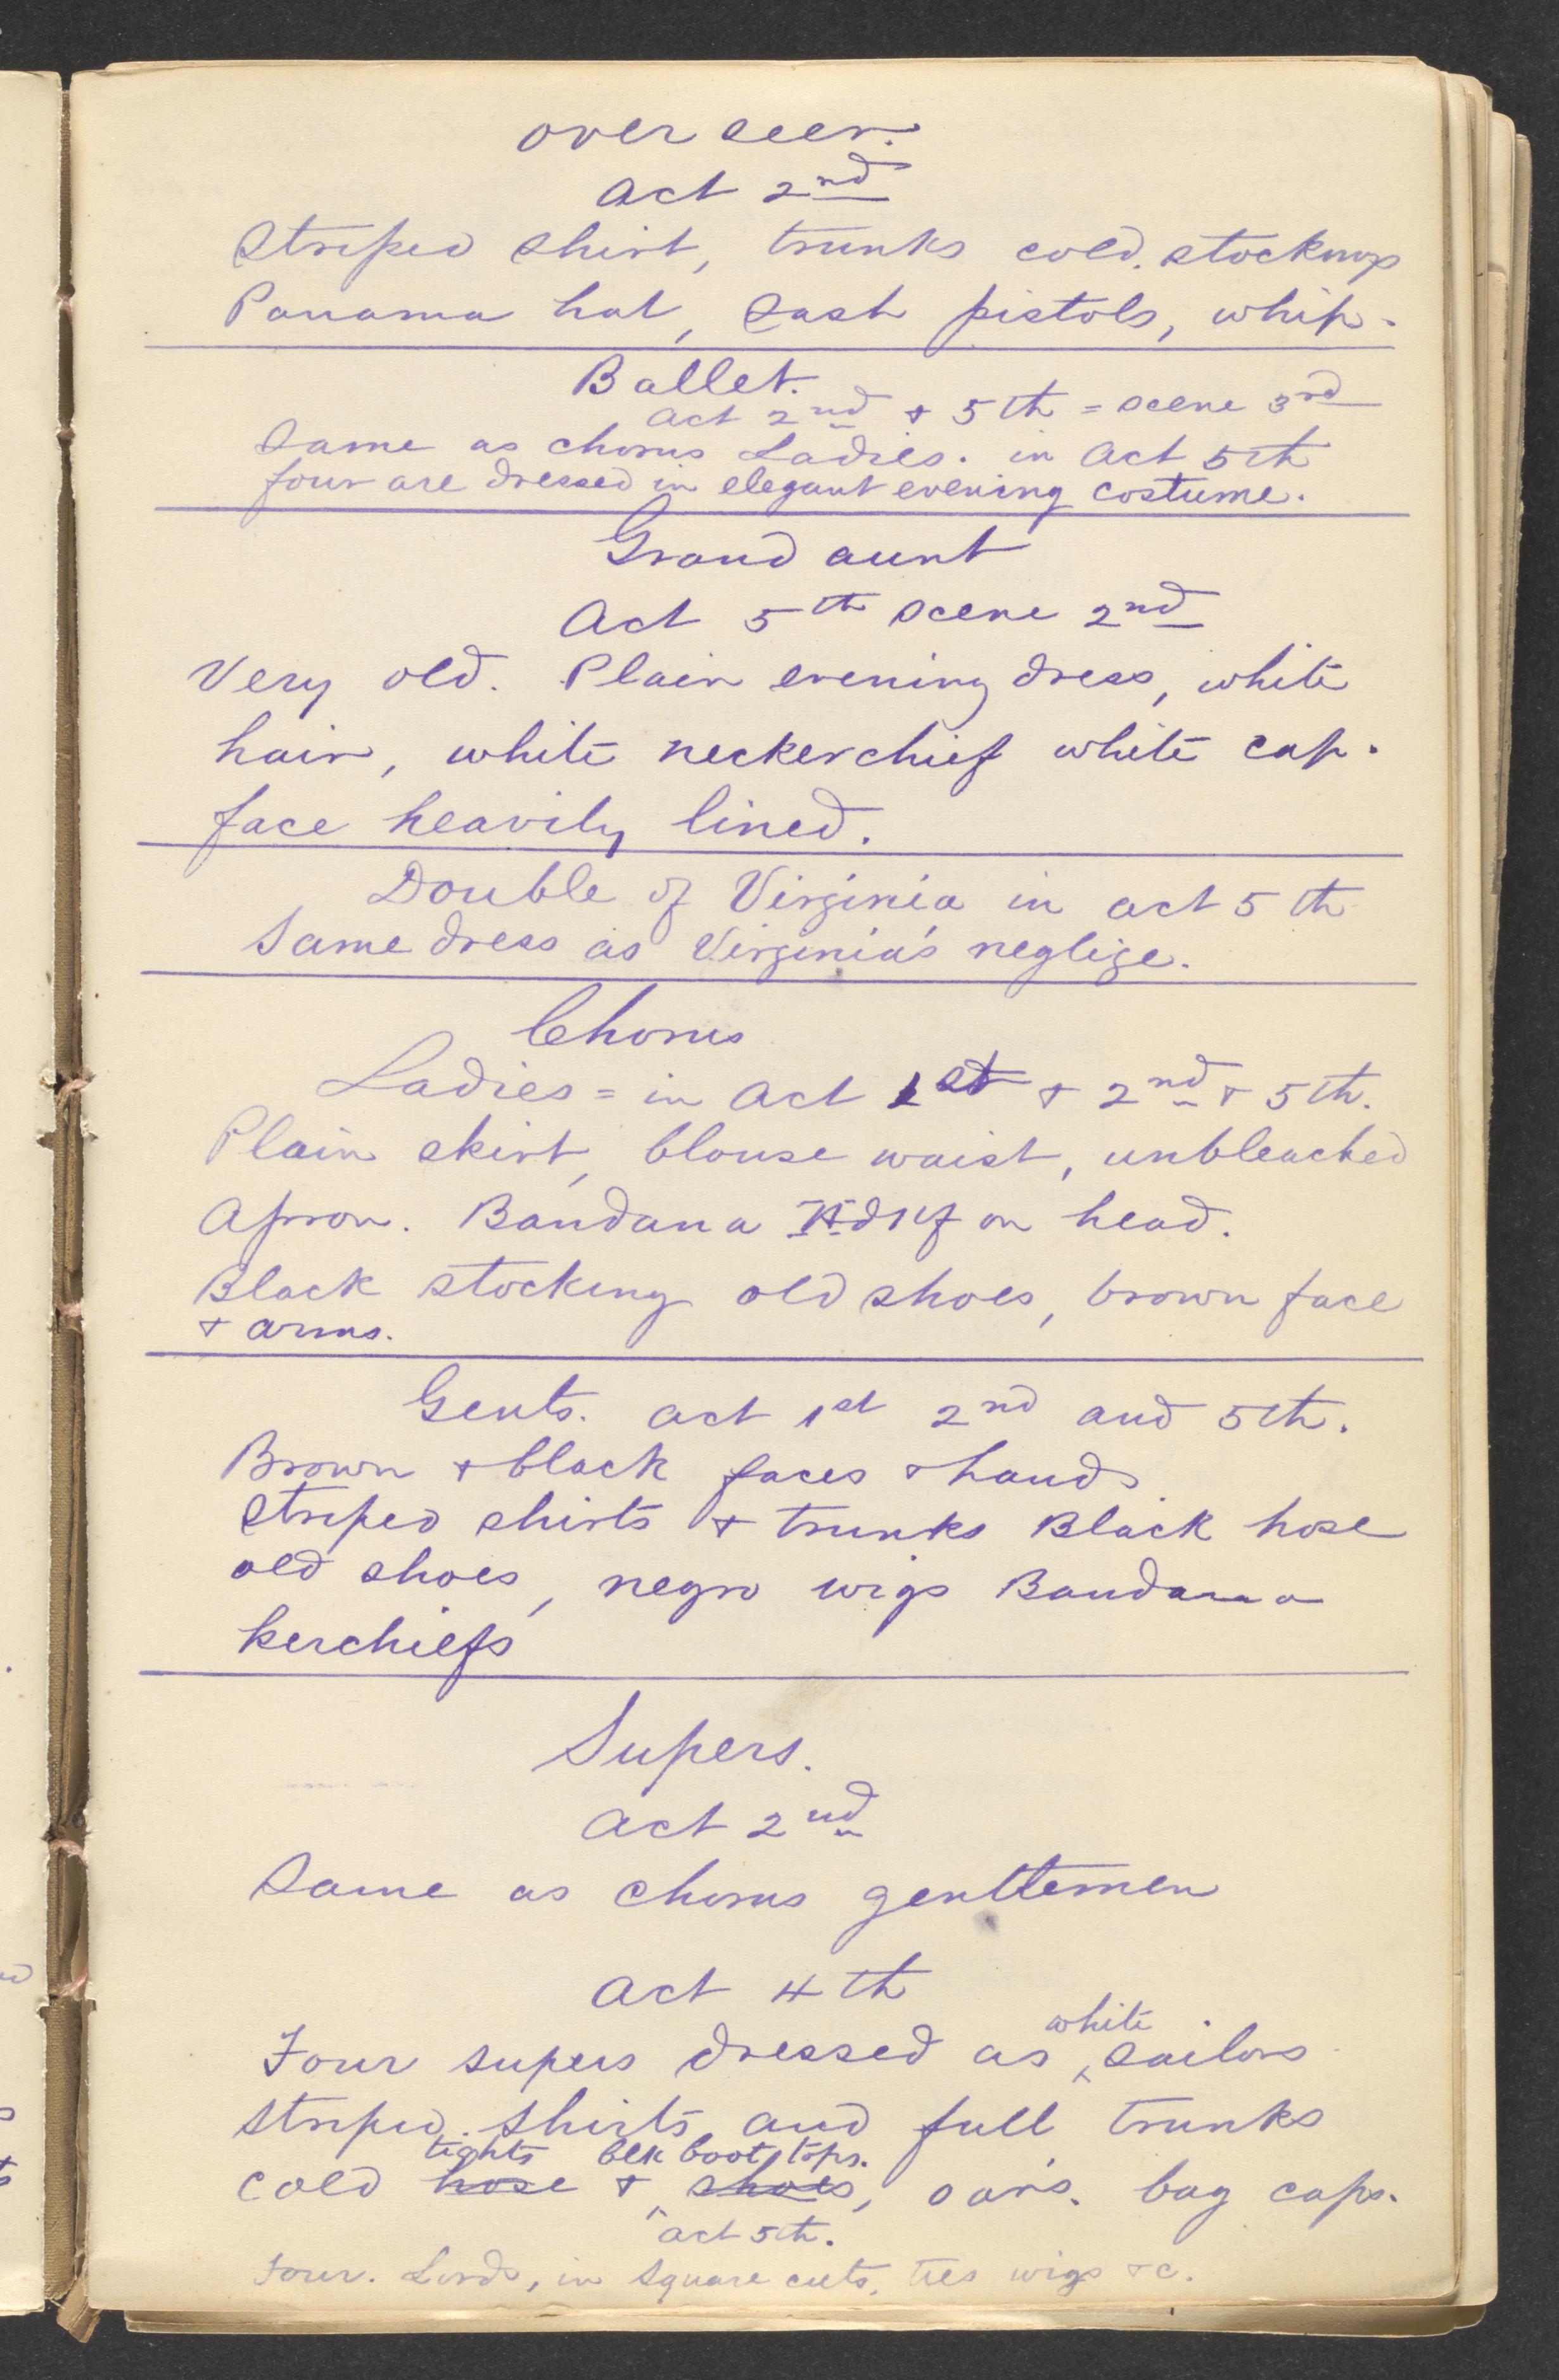 over seer.
act 2nd
Striped shirt, trunks cold. stockings
Panama hat, Sash pistols, whip.
Ballet.
act 2nd + 5th = scene 3rd
Same as chorus Ladies. in act 5th
four are dressed in elegant evening costume.
Grand aunt
Act 5th scene 2nd
Very old. Plain evening dress, white
hair, white neckerchief white cap.
face heavily lined.
Double of Virginia in act 5th
Same dress as Virginia's neglige.
Chorus
Ladies = in act 1st + 2nd + 5th.
Plain skirt, blouse waist, unbleached
Apron. Bandana Hdkf on head.
Black stocking old shoes, brown face
+ arms.
Gents. act 1st 2nd and 5th.
Brown + black faces + hands
Striped shirts + trunks Black hose
old shoes, negro wigs Bandana
kerchiefs
Supers.
act 2nd
Same as chorus gentlemen
act 4th
white
Four supers dressed as ‸ sailors
Striped. Shirts and full trunks
tights blk boot tops.
cold hose + ‸ shoes, oars. bag caps.
act 5th.
Four. Lords, in square cuts, ties wigs &c.